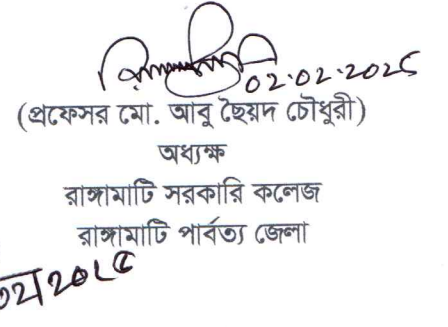 02.02.2025
(প্রফেসর মো. আবু ছৈয়দ চৌধুরী)
অধ্যক্ষ
রাঙ্গামাটি সরকারি কলেজ
রাঙ্গামাটি পার্বত্য জেলা